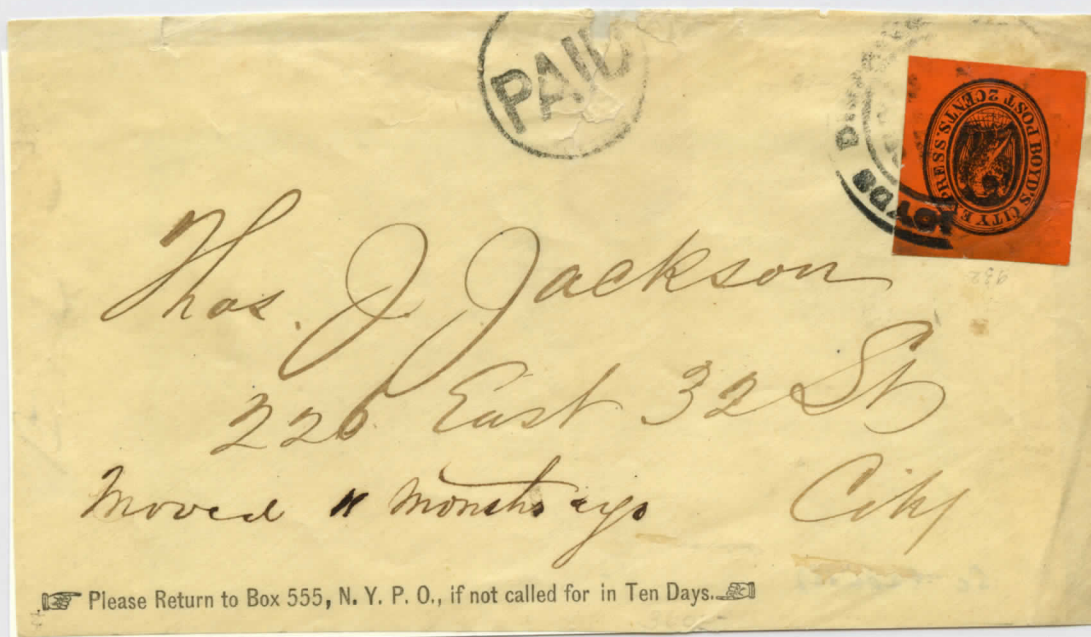 PAID
BOYDS
BOYD'S CITY EXPRESS. POST 2 CENTS.
Thos. J. Jackson
226 East 32 St
Moved 11 Months ago
City
Please Return to Box 555, N. Y. P. O., if not called for in Ten Days.